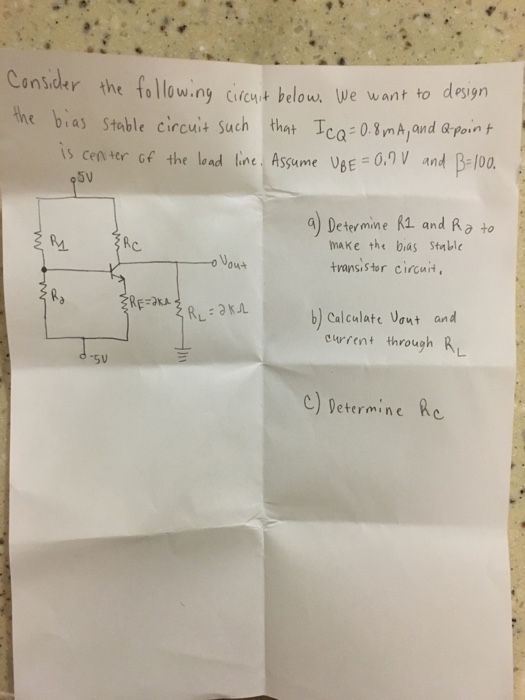 Consider the following circuit below. We want to design
the bias stable circuit such that ICQ=0.8mA, and Q-point
is center of the load line. Assume VBE = 0.7V and β=100.
5V
R1
RC
Vout
R2
RE=2KΩ
RL=2KΩ
-5V
a) Determine R1 and R2 to
make the bias stable
transistor circuit.
b) Calculate Vout and
current through RL
c) Determine Rc